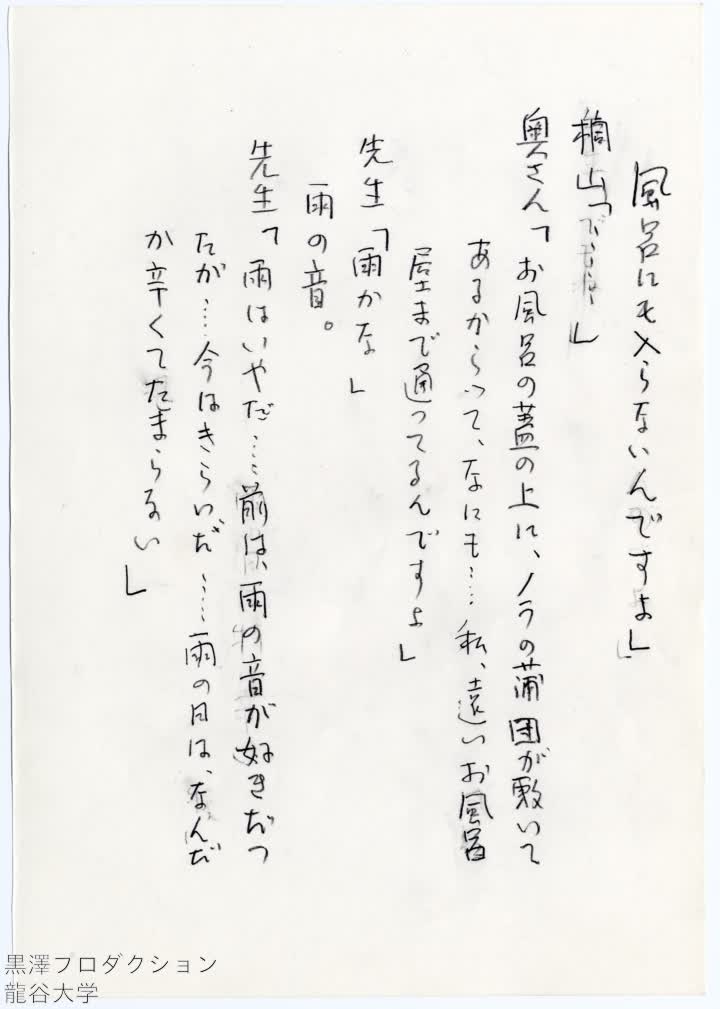 風呂にも入らないんですよ」
桐山「でも……」
奥さん「お風呂の蓋の上に、ノラの蒲団が敷いて
あるからって、なにも……私、遠いお風呂
屋まで通ってるんですよ」
先生「雨かな」
雨の音。
先生「雨はいやだ……前は、雨の音が好きだつ
たが……今はきらいだ……雨の日は、なんだ
か辛くてたまらない」
黒澤プロダクション
龍谷大学